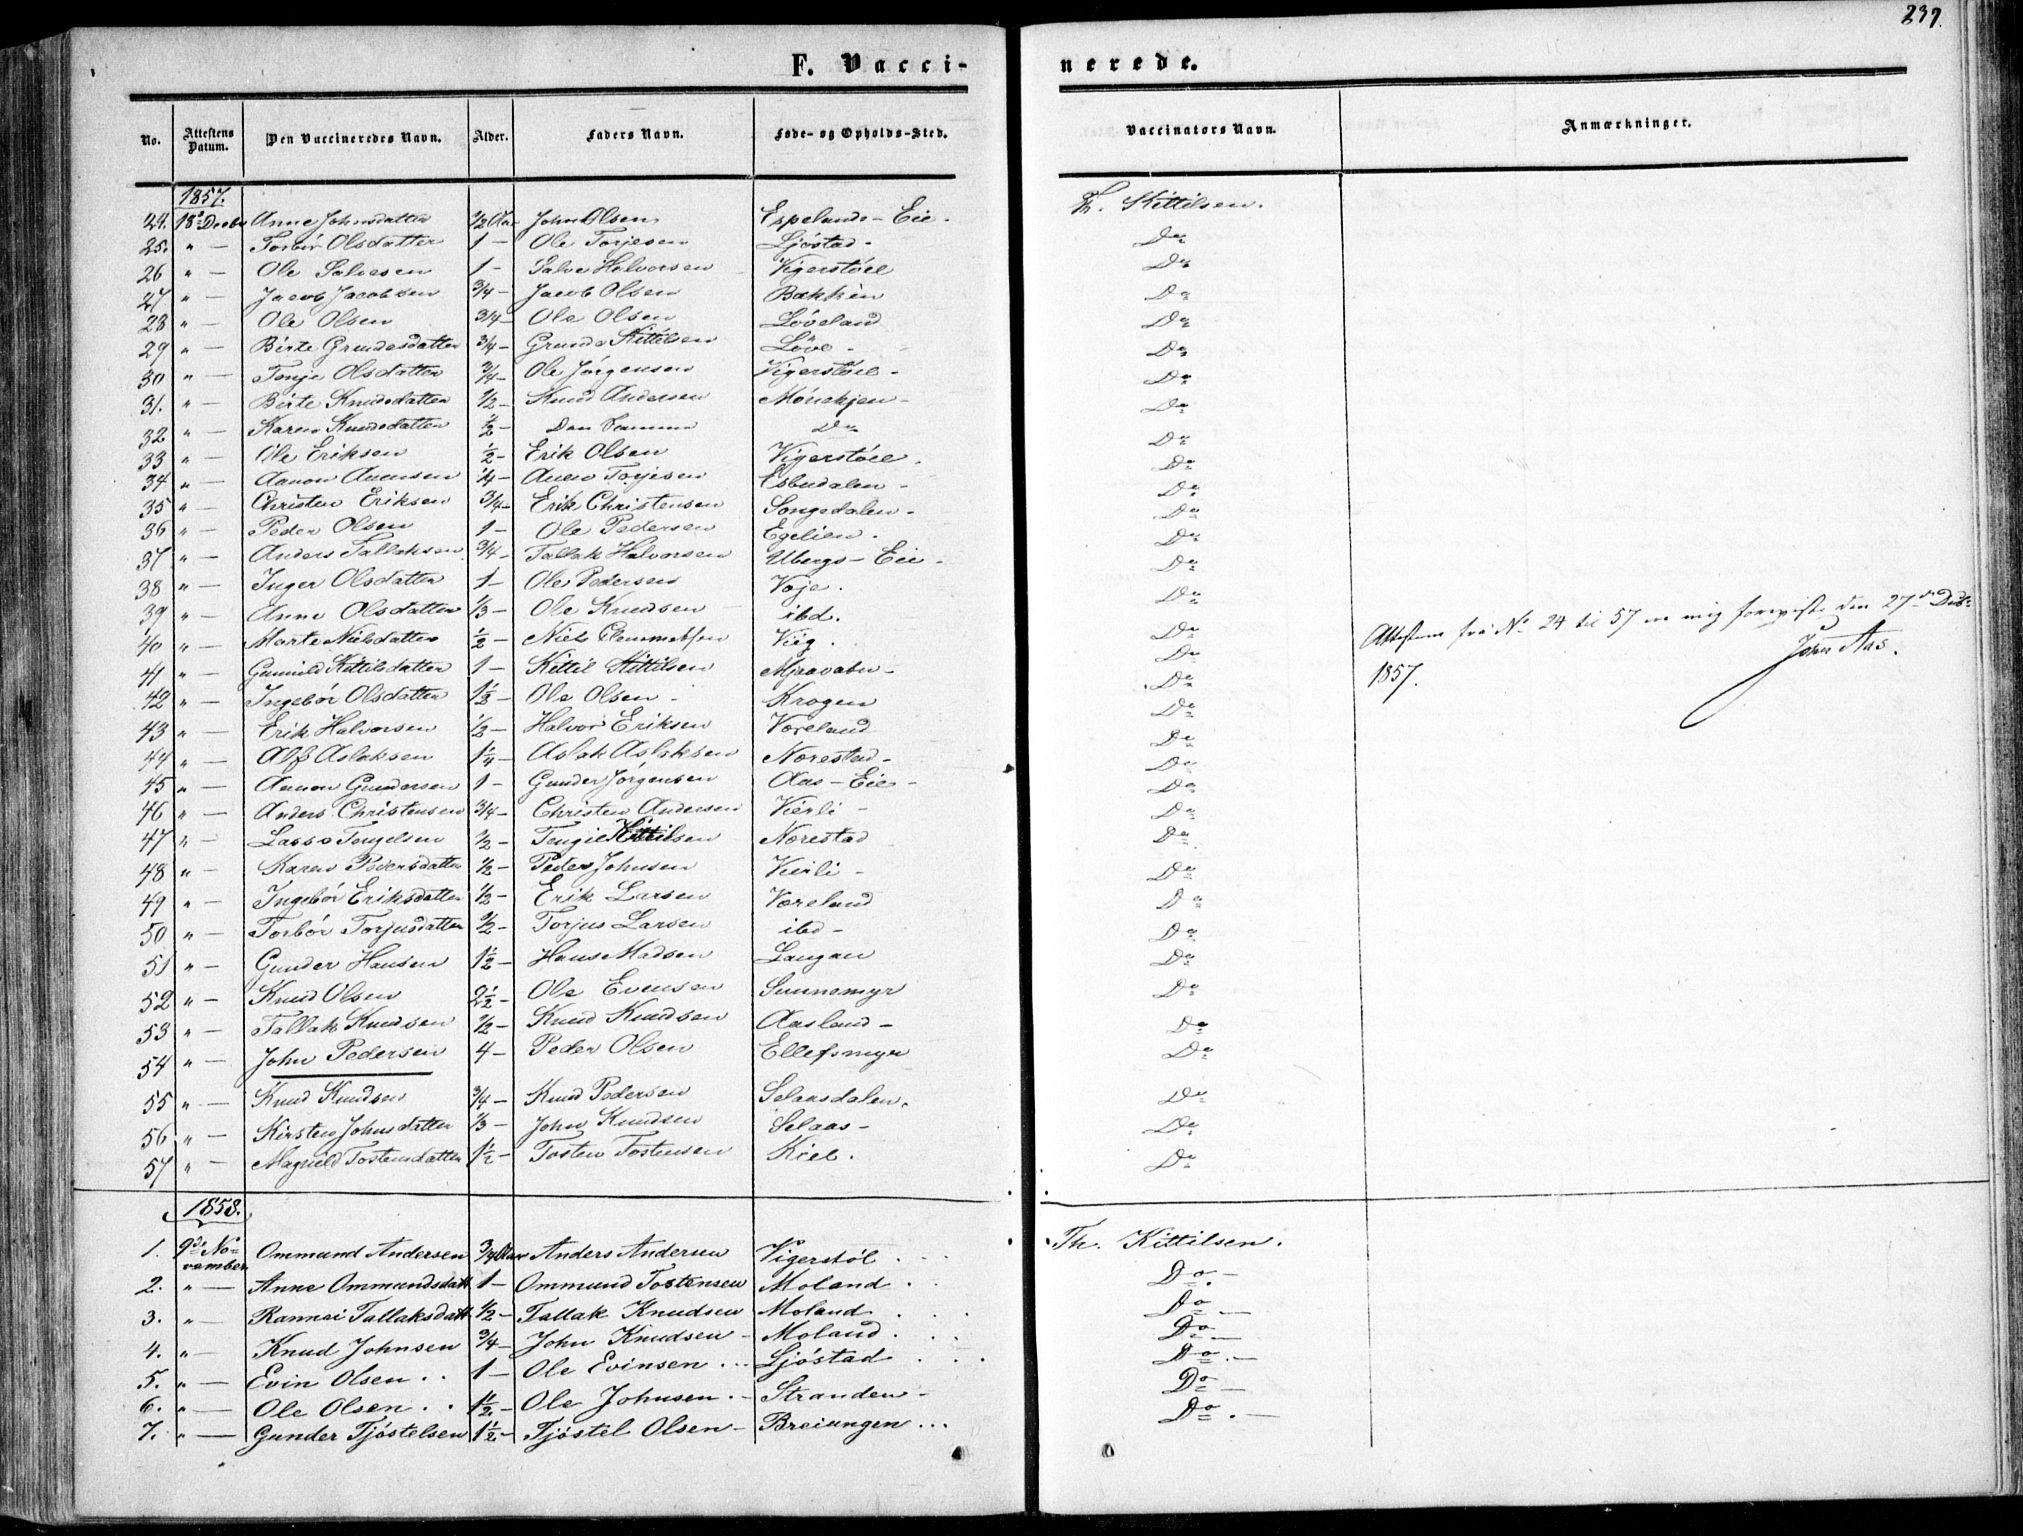 239.
F. Vacci-
nerede.
No. Attestens Datum. Den Vaccineredes Navn. Alder. Faders Navn. Føde- og Opholds-Sted. Vaccinators Navn. Anmærkninger.
1857.
24. 18de Decbr Anne Johnsdatter 1/2 Aar John Olsen Espelands-Eie. Th. Kittilsen.
25. " — Torbør Olsdatter 1 – Ole Torjesen Ljøstad - Do
26 " — Ole Salvesen 1 – Salve Halvorsen Vigerstøel Do
27 " — Jacob Jacobsen 3/4 – Jacob Olsen Bakken Do
28 " — Ole Olsen 3/4 – Ole Olsen Løveland Do
29 " — Birte Grundesdatter 3/4 – Grunde Kittilsen Løve - Do
30 " — Tonje Olsdatter 3/4 – Ole Jørgensen Vigerstøel - Do
31. " — Birte Knudsdatter 1/2 – Knud Andersen Mønekjen - Do
32 " — Karen Knudsdatter 1/2 – Den Samme Do Do
33 " — Ole Eriksen 1/2 – Erik Olsen Vigerstøel. Do
34 " — Aanon Aanensen 1/4 – Torjesen Esbudalen - Do
35 " — Christen Eriksen 3/4 – Erik Christensen Songedalen - Do
36 " — Peder Olsen 1 – Ole Pedersen Egelien. Do
37. " — Anders Tallaksen 3/4 – Tallak Halvorsen Ubergs-Eie - Do
38 " — Inger Olsdatter 1 – Ole Pedersen Voje. Do
39 " — Anne Olsdatter 1/3 – Ole Knudsen ibd. Do
40 " — Marte Nielsdatter 1/2 – Niels Clemmetsen Vieg. Do
Attestene fra No 24 til 57 ere mig foreviste den 27de Decbr
1857. John Aas.
41 " — Gunnild Kittilsdatter 1 – Kittil Kittilsen Mjaavatn - Do
42 " — Ingebør Olsdatter 1 1/2 – Ole Olsen - Krogen Do
43 " — Erik Halvorsen 1/2 – Halvor Eriksen Væreland Do
44 " — Alf Aslaksen 1 1/4 – Aslak Aslaksen Norestad - Do
45 " — Aanon Gundersen 1 – Gunder Jørgensen Aas-Eie - Do
46 " — Anders Christensen 3/4 – Christen Andersen Vierli - Do
47 " — Lasse Tengelsen 1/2 – Tengiel Kittilsen Norestad Do
48 " — Karen Pedersdatter 1/2 – Peder Johnsen Vierli - Do
49 " — Ingebør Eriksdatter 1/2 – Erik Larsen Væreland Do
50 " — Torbør Torjusdatter 1/2 – Torjus Larsen ibd - Do
51 " — Gunder Hansen 1 1/2 – Hans Madsen Langan Do
52 " — Knud Olsen 2 1/2 – Ole Evensen Sunnsmyr Do
53 " — Tallak Knudsen 1/2 – Knud Knudsen Aasland - Do
54 " — John Pedersen 4 – Peder Olsen Ellefsmyr Do
55 " — Knud Knudsen 3/4 – Knud Pedersen Selaasdalen. Do
56 " — Kirsten Johnsdatter 1/3 – John Knudsen Selaas - Do
57 " — Magnild Tostensdatter 1 1/2 – Tosten Tostensen Kiel. Do
1858.
1. 9de November Ommund Andersen 3/4 Aar Anders Andersen Vigerstøl. Th. Kittilsen.
2. " — Anne Ommundsdatt 1 – Ommund Tostensen Moland. Do. –
3. " — Rannei Tallaksdatt 1/2 – Tallak Knudsen Moland. Do –
4. " — Knud Johnsen 3/4 – John Knudsen - Moland. Do –
5. " — Evin Olsen.. 1 – Ole Evinsen... Ljøstad Do. –
6. " — Ole Olsen.. 1 1/2 – Ole Johnsen. - Stranden - Do –
7. " — Gunder Tjøstelsen 1 1/2 – Tjøstel Olsen - Breiungen... Do. –